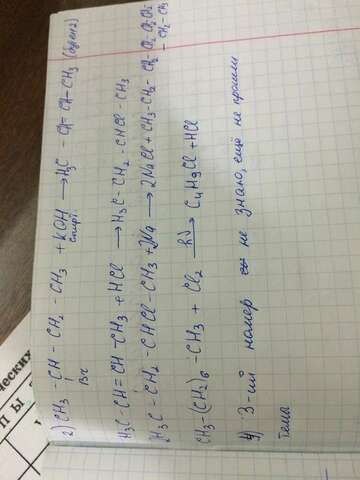 2) CH3 - CH - CH2 - CH3 + KOH спирт. → H3C - CH = CH - CH3 (бутен 2)
Br
H3C - CH = CH - CH3 + HCl → H3C - CH2 - CHCl - CH3
H3C - CH2 - CHCl - CH3 + 2Na → 2NaCl + CH3 - CH2 -
- CH2 - CH3
CH3 - (CH2)6 - CH3 + Cl2 → C4H9Cl + HCl
4) 3-ий номер не знаю, ещё не прошли
тема
ческих